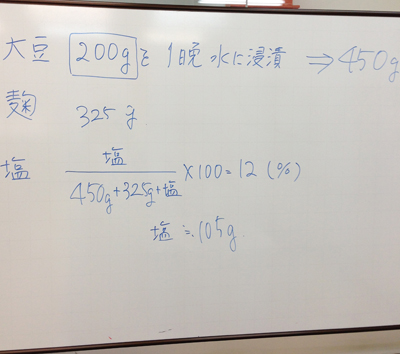 大豆 200gを 1晩 水に浸漬 ⇒450g
麹 325g
塩 塩/450g+325g+塩 ×100=12 (%)
塩≒105g